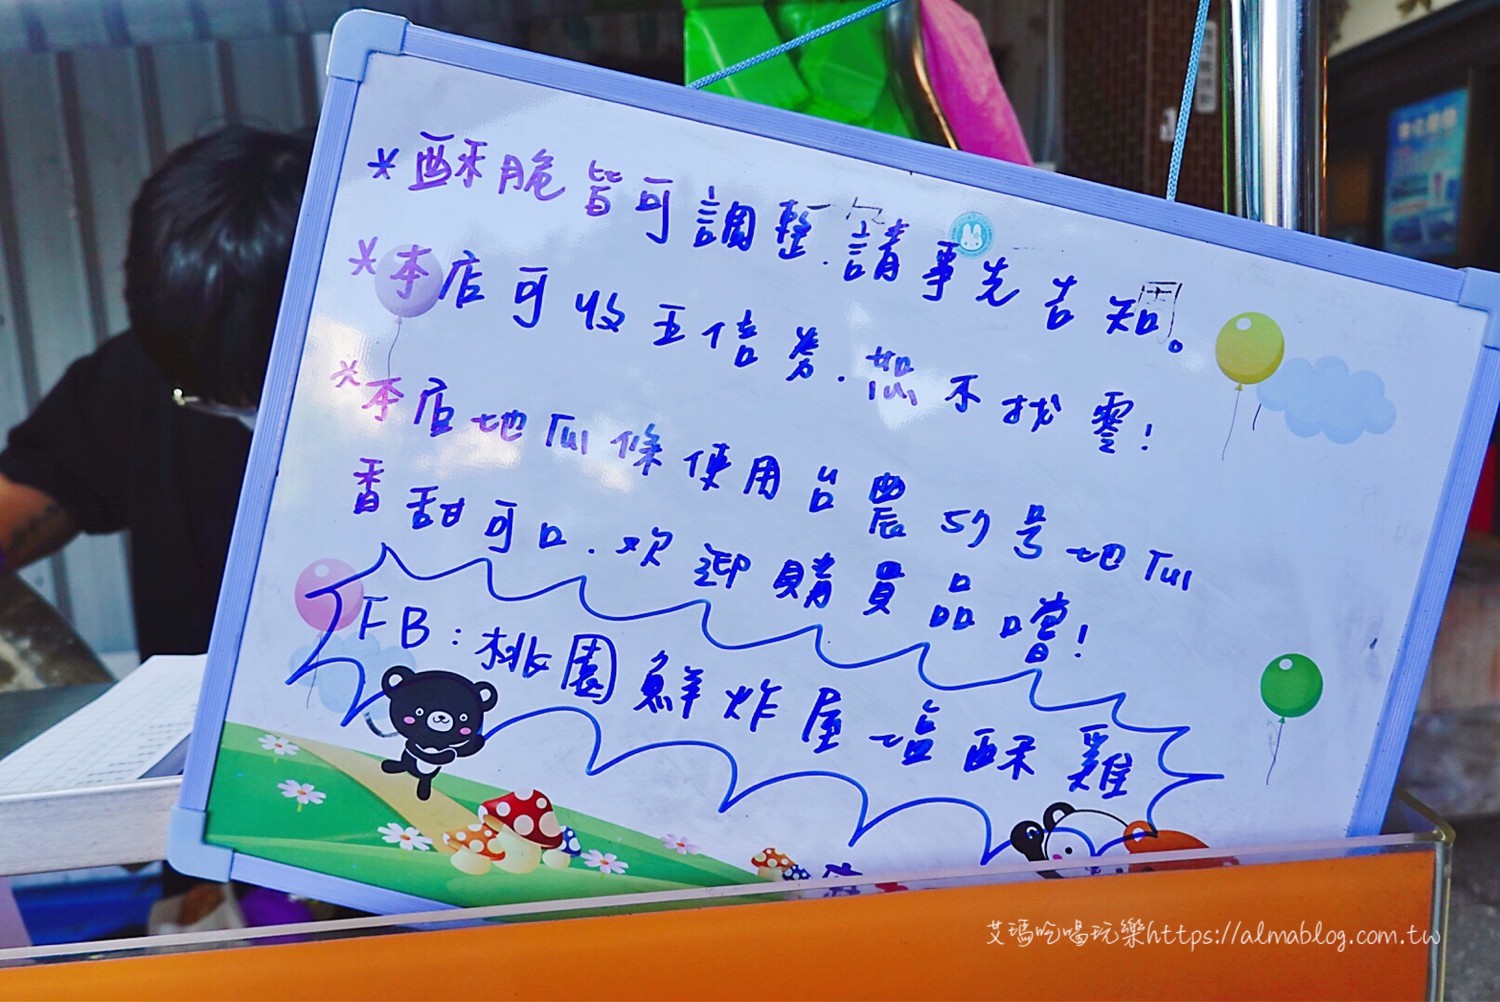 *酥脆皆可調整.請事先告知。
*本店可收五倍券.恕不找零!
*本店地瓜條使用台農57号地瓜
香甜可口.欢迎購買品嚐!
FB:桃園鮮炸屋塩酥雞
艾瑪吃喝玩樂https://almablog.com.tw